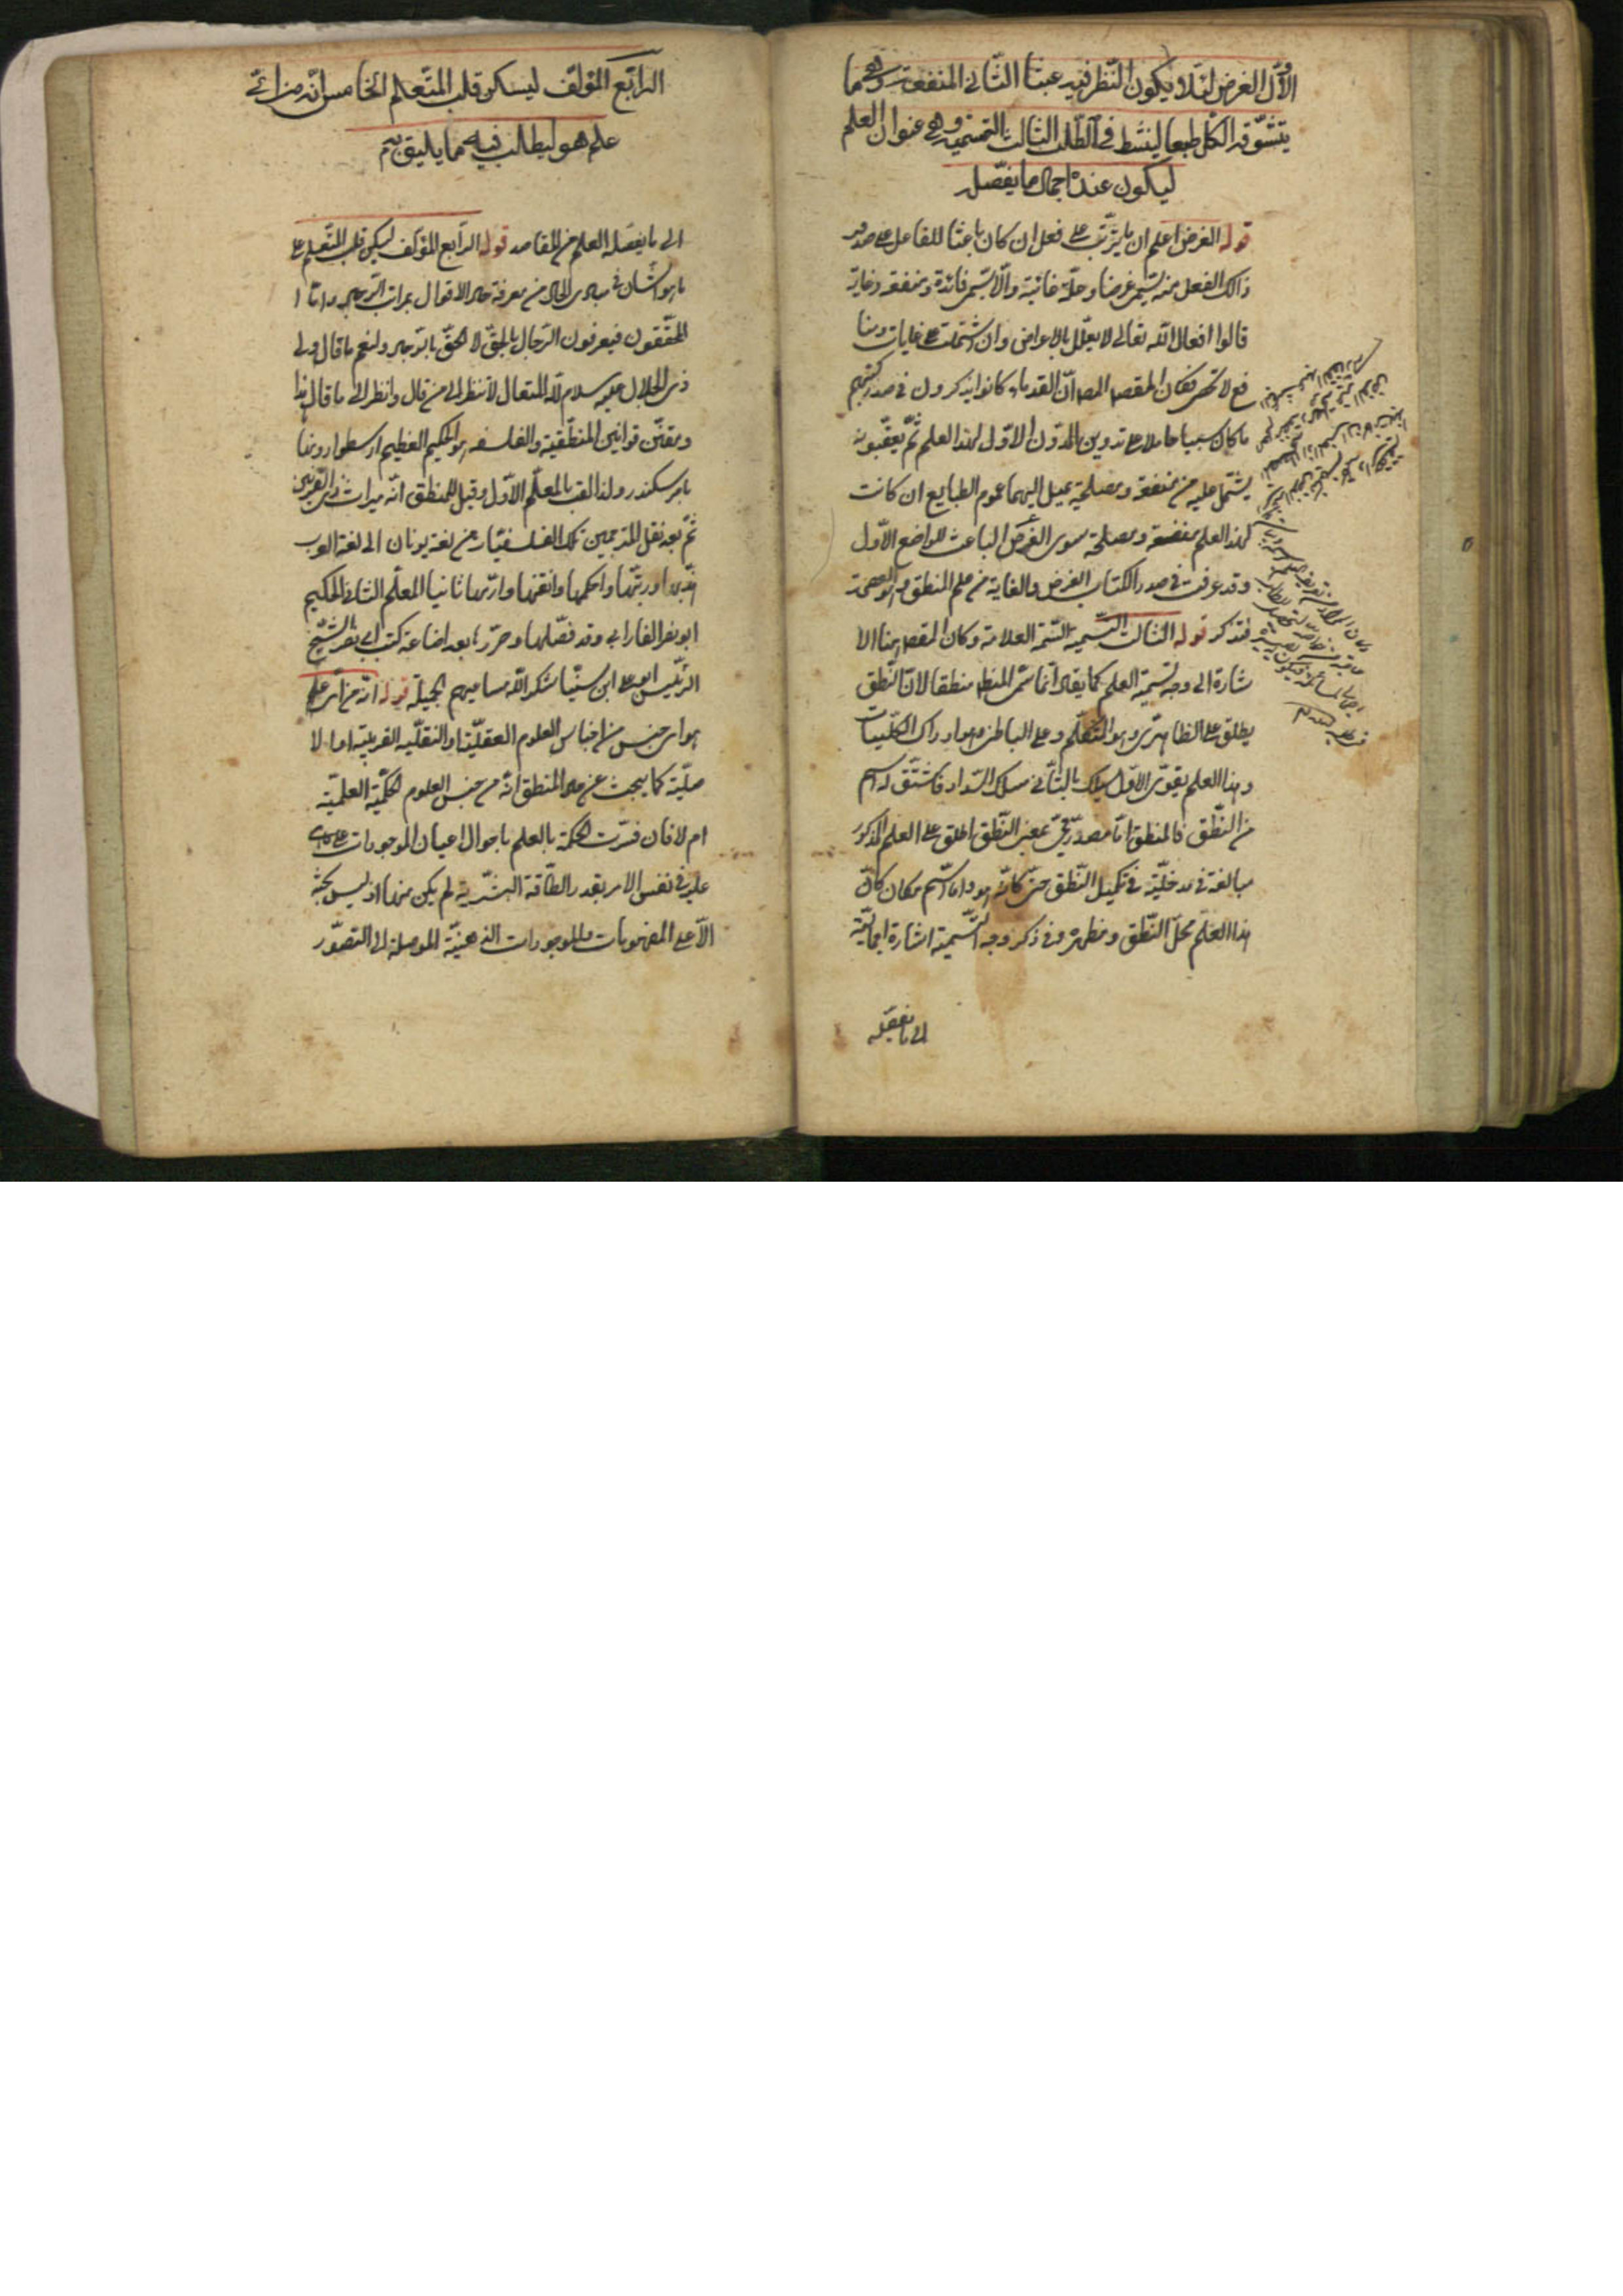 الاوّل الغرض لئلا يكون النّظر فيه عبثا الثّاني المنفعة وهي ما
يتشوّقه الكلّ طبعا لينشط في الطّلب الثالث التسمية وهي عنوان العلم
ليكون عنده اجمال ما يفصّل
قوله الغرض اعلم ان ما يترتّب على فعل ان كان باعثا للفاعل على صدور
ذلك الفعل منه يسمّى غرضا وعلّة غائية والّا يسمّى فائدة ومنفعة وغاية
قالوا افعال اللّه تعالى لا يعلّل بالاغراض وان اشتملت على غايات ومنا
فع لا تحصى فكان المقصـ المصـ انّ القدماء كانوا يذكرون في صدر كتبهم
ما كان سببا حاملا على تدوين المدوّن الاوّل لهذا العلم ثمّ يعقّبونه
يشتمل عليه من منفعة ومصلحة يميل اليهما عموم الطبايع ان كانت
لهذا العلم منفعة ومصلحة سوى الغرض الباعث للواضع الاوّل
وقد عرفت في صدر الكتاب الغرض والغاية من علم المنطق وهو العصمة
فتذكر قوله الثالث التسمية السّمة العلامة وكان المقصـ هنا الا
شارة الى وجه تسمية العلم كما يقال انّما سمّى المنطق منطقا لانّ النّطق
يطلق على الظاهريّ وهو التّكلّم وعلى الباطنى وهو ادراك الكلّيات
وهذا العلم يقوّى الاوّل ويسلك بالثّاني مسلك السّداد فاشتقّ له اسم
من النّطق فالمنطق امّا مصدر ميميّ بمعنى النّطق اطلق على العلم المذكور
مبالغة في مدخليّته في تكميل النّطق حتّى كانّه هو واما اسم مكان كانّ
هذا العلم محلّ النّطق ومظهره وفي ذكر وجه التّسمية اشارة اجماليّة
الى ما يفصّله
الرابع المؤلّف ليسكن قلب المتعلّم الخامس انّه من ايّ
علم هو ليطلب فيه ما يليق به
الى ما يفصّله العلم من المقاصد قوله الرابع المؤلّف ليسكن قلب المتعلّم على
ما هو الشأن في مبادى الحال من معرفة حال الاقوال بمراتب الرّجال وامّا ا
لمحقّقون فيعرفون الرّجال بالحقّ لا الحقّ بالرّجال ولنعم ما قال ولى
ذى الجلال عليه سلام اللّه المتعال لا تنظر الى من قال وانظر الى ما قال هذا
ومقنّن قوانين المنطقية والفلسفة هو الحكيم العظيم ارسطو دونها
بامر اسكندر ولذا لقب بالمعلّم الاوّل وقيل للمنطق انّه ميراث ذى القرنين
ثمّ بعد نقل المترجمين تلك الفلسفيّات من لغة يونان الى لغة العرب
هذّبها ورتّبها واحكمها واتقنها ثانيا المعلّم الثانى الحكيم
ابو نصر الفارابى وقد فصّلها وحرّرها بعد اضاعة كتب ابى نصر الشّيخ
الرئيس ابو على ابن سينا شكر اللّه مساعيهم الجميلة قوله انّه من ايّ علم
هو اى من ايّ جنس من اجناس العلوم العقليّة او النقليّة الفرعيّة او الا
صليّة كما يبحث عن حال المنطق انّه من جنس العلوم الحكميّة العلميّة
ام لا فان فسّرت الحكمة بالعلم باحوال اعيان الموجودات على ما هى
عليه في نفس الامر بقدر الطّاقة البشريّة لم يكن منها اذ ليس بحثه
الّا عن المفهومات والموجودات الذهنيّة الموصلة الى التصوّر